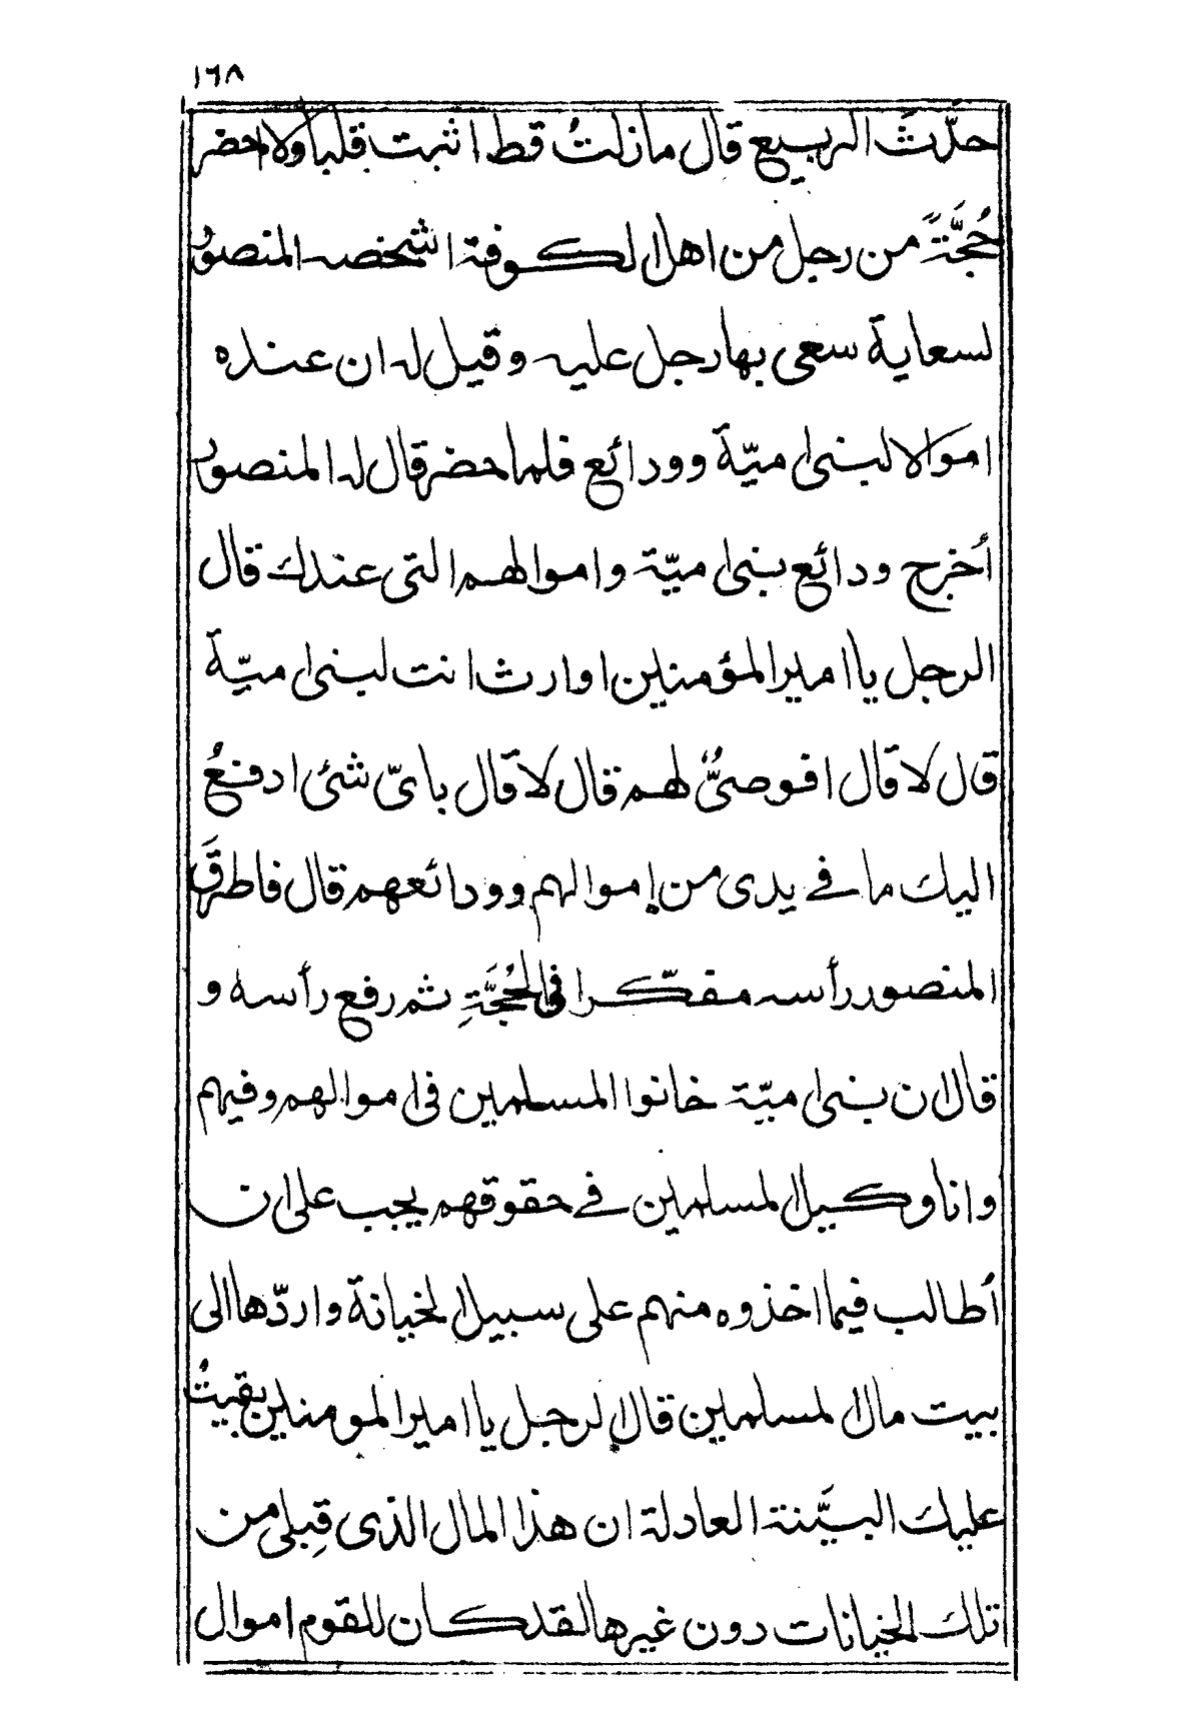 ١٦٨
حدّثَ الربيع قال مازلتُ قط اثبت قلباً ولا احضر
حُجَّةً من رجل من اهل الكوفة اشخصه المنصورُ
لسعاية سعى بها رجل عليه وقيل له ان عنده
اموالا لبنى اميّة وودائع فلما احضر قال له المنصور
أخرج ودائع بنى اميّة واموالهم التى عندك قال
الرجل يا امير المؤمنين اوارث انت لبنى اميّة
قال لا قال افوصىٌّ لهم قال لا قال باىّ شئ ادفعُ
اليك ما فى يدى من إموالهم وودائعهم قال فاطرقَ
المنصور رأسه مفكّرا فى الحُجَّةِ ثم رفع رأسه و
قال ان بنى اميّة خانوا المسلمين فى اموالهم وفيهم
وانا وكيل المسلمين فى حقوقهم يجب على ان
أطالب فيما اخذوه منهم على سبيل الخيانة واردّها الى
بيت مال المسلمين قال الرجل يا امير المومنين بقيتُ
عليك البيَّنة العادلة ان هذا المال الذى قِبلى من
تلك الخيانات دون غيرها لقد كان للقوم اموال